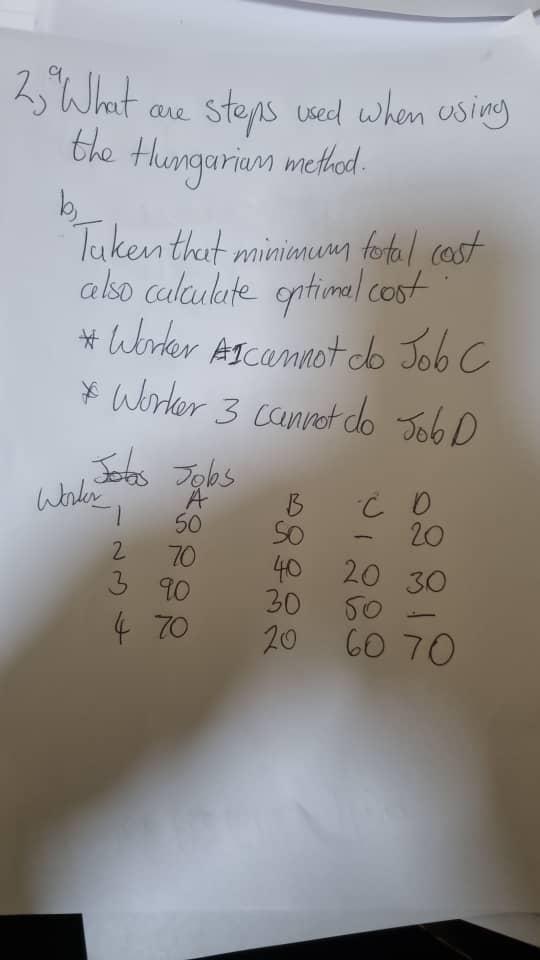 2, a, What are steps used when using
the Hungarian method.
b,
Taken that minimum total cost
also calculate optimal cost.
* Worker 1 cannot do Job C
* Worker 3 cannot do Job D
Jobs Jobs
Worker A B C D
1 50 50 - 20
2 70 40 20 30
3 90 30 50 -
4 70 20 60 70